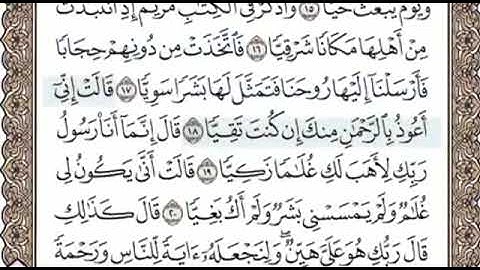 وَيَوْمَ يُبْعَثُ حَيًّا ١٥ وَاذْكُرْ فِي الْكِتَٰبِ مَرْيَمَ إِذِ انتَبَذَتْ
مِنْ أَهْلِهَا مَكَانًا شَرْقِيًّا ١٦ فَاتَّخَذَتْ مِن دُونِهِمْ حِجَابًا
فَأَرْسَلْنَا إِلَيْهَا رُوحَنَا فَتَمَثَّلَ لَهَا بَشَرًا سَوِيًّا ١٧ قَالَتْ إِنِّي
أَعُوذُ بِالرَّحْمَٰنِ مِنكَ إِن كُنتَ تَقِيًّا ١٨ قَالَ إِنَّمَا أَنَا۠ رَسُولُ
رَبِّكِ لِأَهَبَ لَكِ غُلَٰمًا زَكِيًّا ١٩ قَالَتْ أَنَّىٰ يَكُونُ لِي
غُلَٰمٌ وَلَمْ يَمْسَسْنِي بَشَرٌ وَلَمْ أَكُ بَغِيًّا ٢٠ قَالَ كَذَٰلِكِ
قَالَ رَبُّكِ هُوَ عَلَيَّ هَيِّنٌ ۖ وَلِنَجْعَلَهُ ءَايَةً لِّلنَّاسِ وَرَحْمَةً